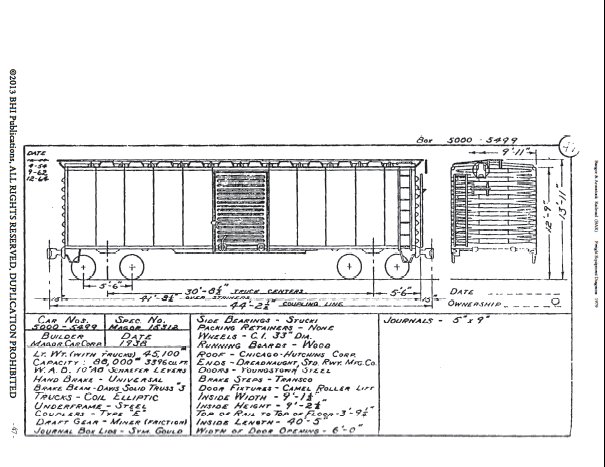 Box 5000 - 5499
41
9'-11"
DATE
4-54
9-62
12-64
13'-11"
5'-6"
30'-8½" TRUCK CENTERS
5'-6"
OVER STRIKERS
44'-2½" COUPLING LINE
DATE
OWNERSHIP
CAR NOS. SPEC. NO.
5000-5499 MAGOR 15312
BUILDER DATE
MAGOR CAR CORP. 1938
LT. WT. (WITH TRUCKS) 45,100#
CAPACITY: 88,000# 3396 CU.FT.
W.A.B. 10"AB SCHAEFER LEVERS
HAND BRAKE - UNIVERSAL
BRAKE BEAM - DAVIS SOLID TRUSS #3
TRUCKS - COIL ELLIPTIC
UNDERFRAME - STEEL
COUPLERS - TYPE "E"
DRAFT GEAR - MINER (FRICTION)
JOURNAL BOX LIDS - SYM. GOULD
SIDE BEARINGS - STUCKI
PACKING RETAINERS - NONE
WHEELS - C.I. 33" DIA.
RUNNING BOARDS - WOOD
ROOF - CHICAGO-HUTCHINS CORP.
ENDS - DREADNAUGHT, STD. RWY. MFG. CO.
DOORS - YOUNGSTOWN STEEL
BRAKE STEPS - TRANSCO
DOOR FIXTURES - CAMEL ROLLER LIFT
INSIDE WIDTH - 9'-1½"
INSIDE HEIGHT - 9'-2½"
TOP OF RAIL TO TOP OF FLOOR - 3'-9½"
INSIDE LENGTH - 40'-5"
WIDTH OF DOOR OPENING - 6'-0"
JOURNALS - 5" X 9"
©2013 BHI Publications, ALL RIGHTS RESERVED, DUPLICATION PROHIBITED